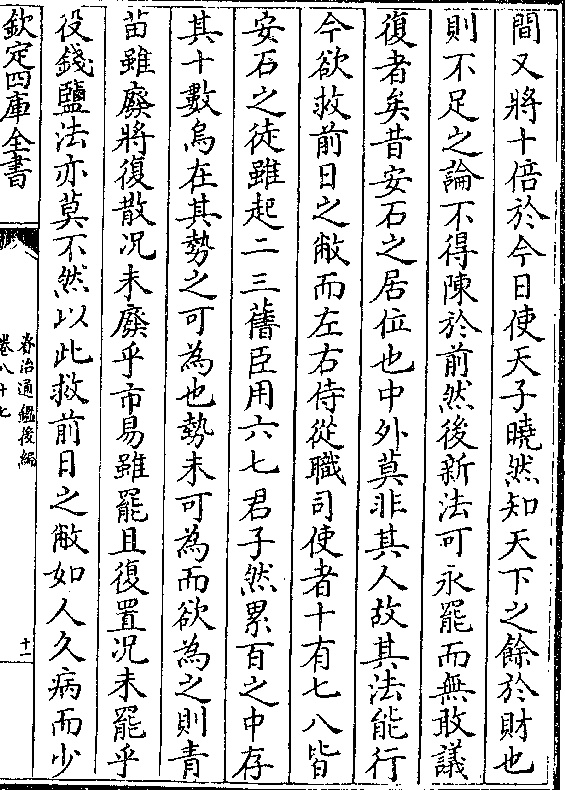 間又將十倍於今日使天子曉然知天下之餘於財也
則不足之論不得陳於前然後新法可永罷而無敢議
復者矣昔安石之居位也中外莫非其人故其法能行
今欲救前日之敝而左右侍從職司使者十有七八皆
安石之徒雖起二三舊臣用六七君子然累百之中存
其十數烏在其勢之可為也勢未可為而欲為之則青
苗雖廢將復散况未廢乎市易雖罷且復置况未罷乎
役錢鹽法亦莫不然以此救前日之敝如人久病而少
欽定四庫全書
資治通鑑後編
卷八十七
十一